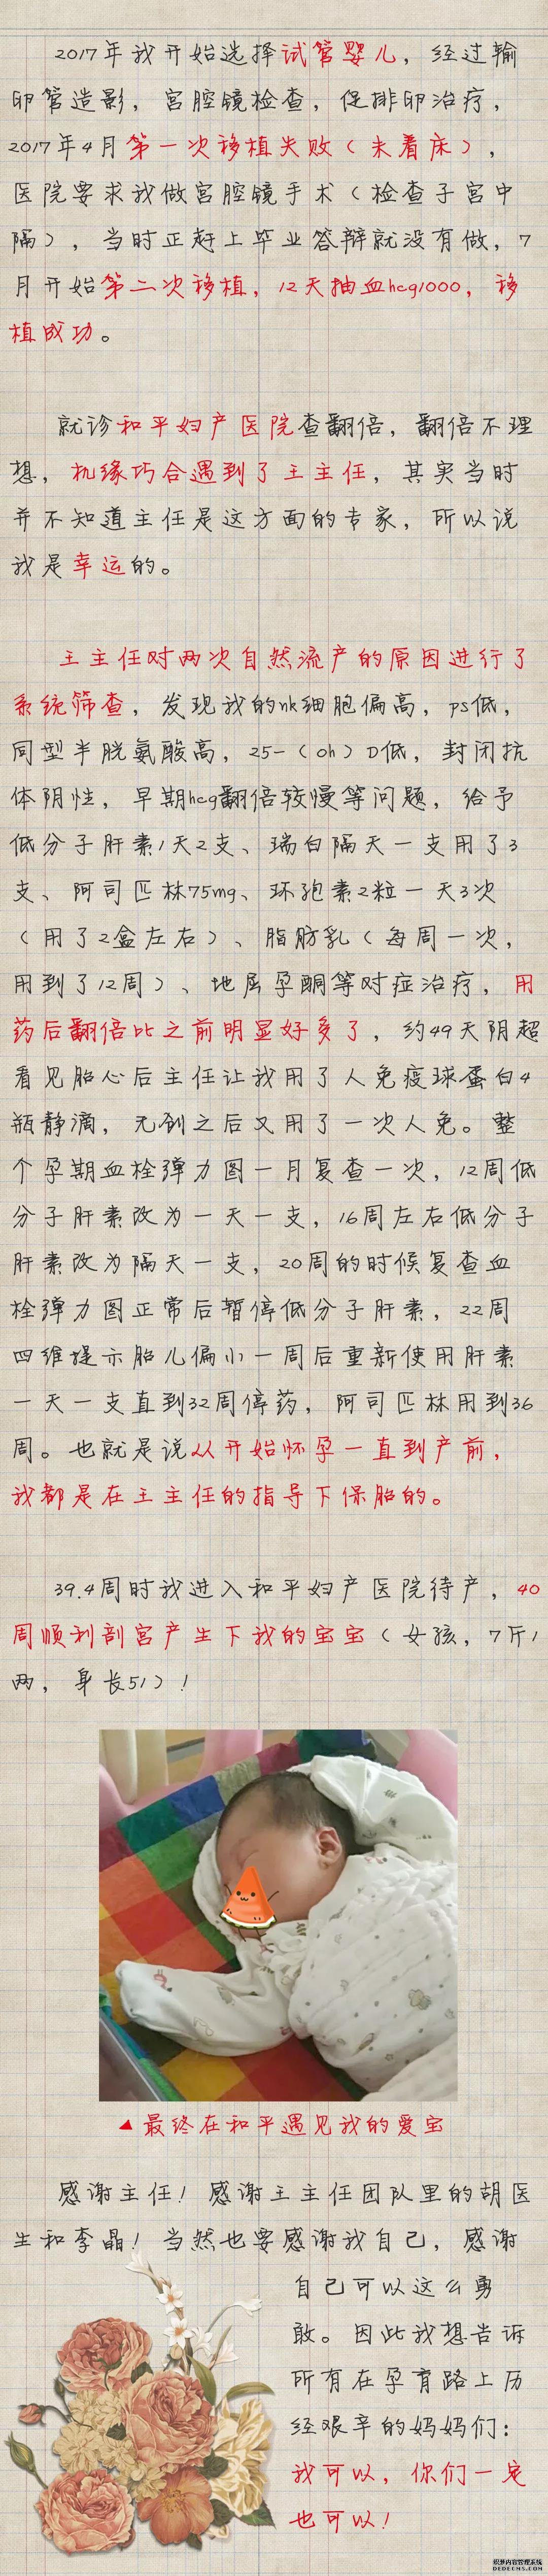 2017年我开始选择试管婴儿，经过输
卵管造影，宫腔镜检查，促排卵治疗，
2017年4月第一次移植失败（未着床），
医院要求我做宫腔镜手术（检查子宫中
隔），当时正赶上毕业答辩就没有做，7
月开始第二次移植，12天抽血hcg1000，移
植成功。
就诊和平妇产医院查翻倍，翻倍不理
想，机缘巧合遇到了王主任，其实当时
并不知道主任是这方面的专家，所以说
我是幸运的。
王主任对两次自然流产的原因进行了
系统筛查，发现我的nk细胞偏高，ps低，
同型半胱氨酸高，25-（oh）D低，封闭抗
体阴性，早期hcg翻倍较慢等问题，给予
低分子肝素1天2支、瑞白隔天一支用了3
支、阿司匹林75mg、环孢素2粒一天3次
（用了2盒左右）、脂肪乳（每周一次，
用到了12周）、地屈孕酮等对症治疗，用
药后翻倍比之前明显好多了，约49天阴超
看见胎心后主任让我用了人免疫球蛋白4
瓶静滴，无创之后又用了一次人免。整
个孕期血栓弹力图一月复查一次，12周低
分子肝素改为一天一支，16周左右低分子
肝素改为隔天一支，20周的时候复查血
栓弹力图正常后暂停低分子肝素，22周
四维提示胎儿偏小一周后重新使用肝素
一天一支直到32周停药，阿司匹林用到36
周。也就是说从开始怀孕一直到产前，
我都是在王主任的指导下保胎的。
39.4周时我进入和平妇产医院待产，40
周顺利剖宫产生下我的宝宝（女孩，7斤1
两，身长51）！
▲最终在和平遇见我的爱宝
感谢主任！感谢王主任团队里的胡医
生和李晶！当然也要感谢我自己，感谢
自己可以这么勇
敢。因此我想告诉
所有在孕育路上历
经艰辛的妈妈们：
我可以，你们一定
也可以！
织梦内容管理系统
DEDECMS.COM